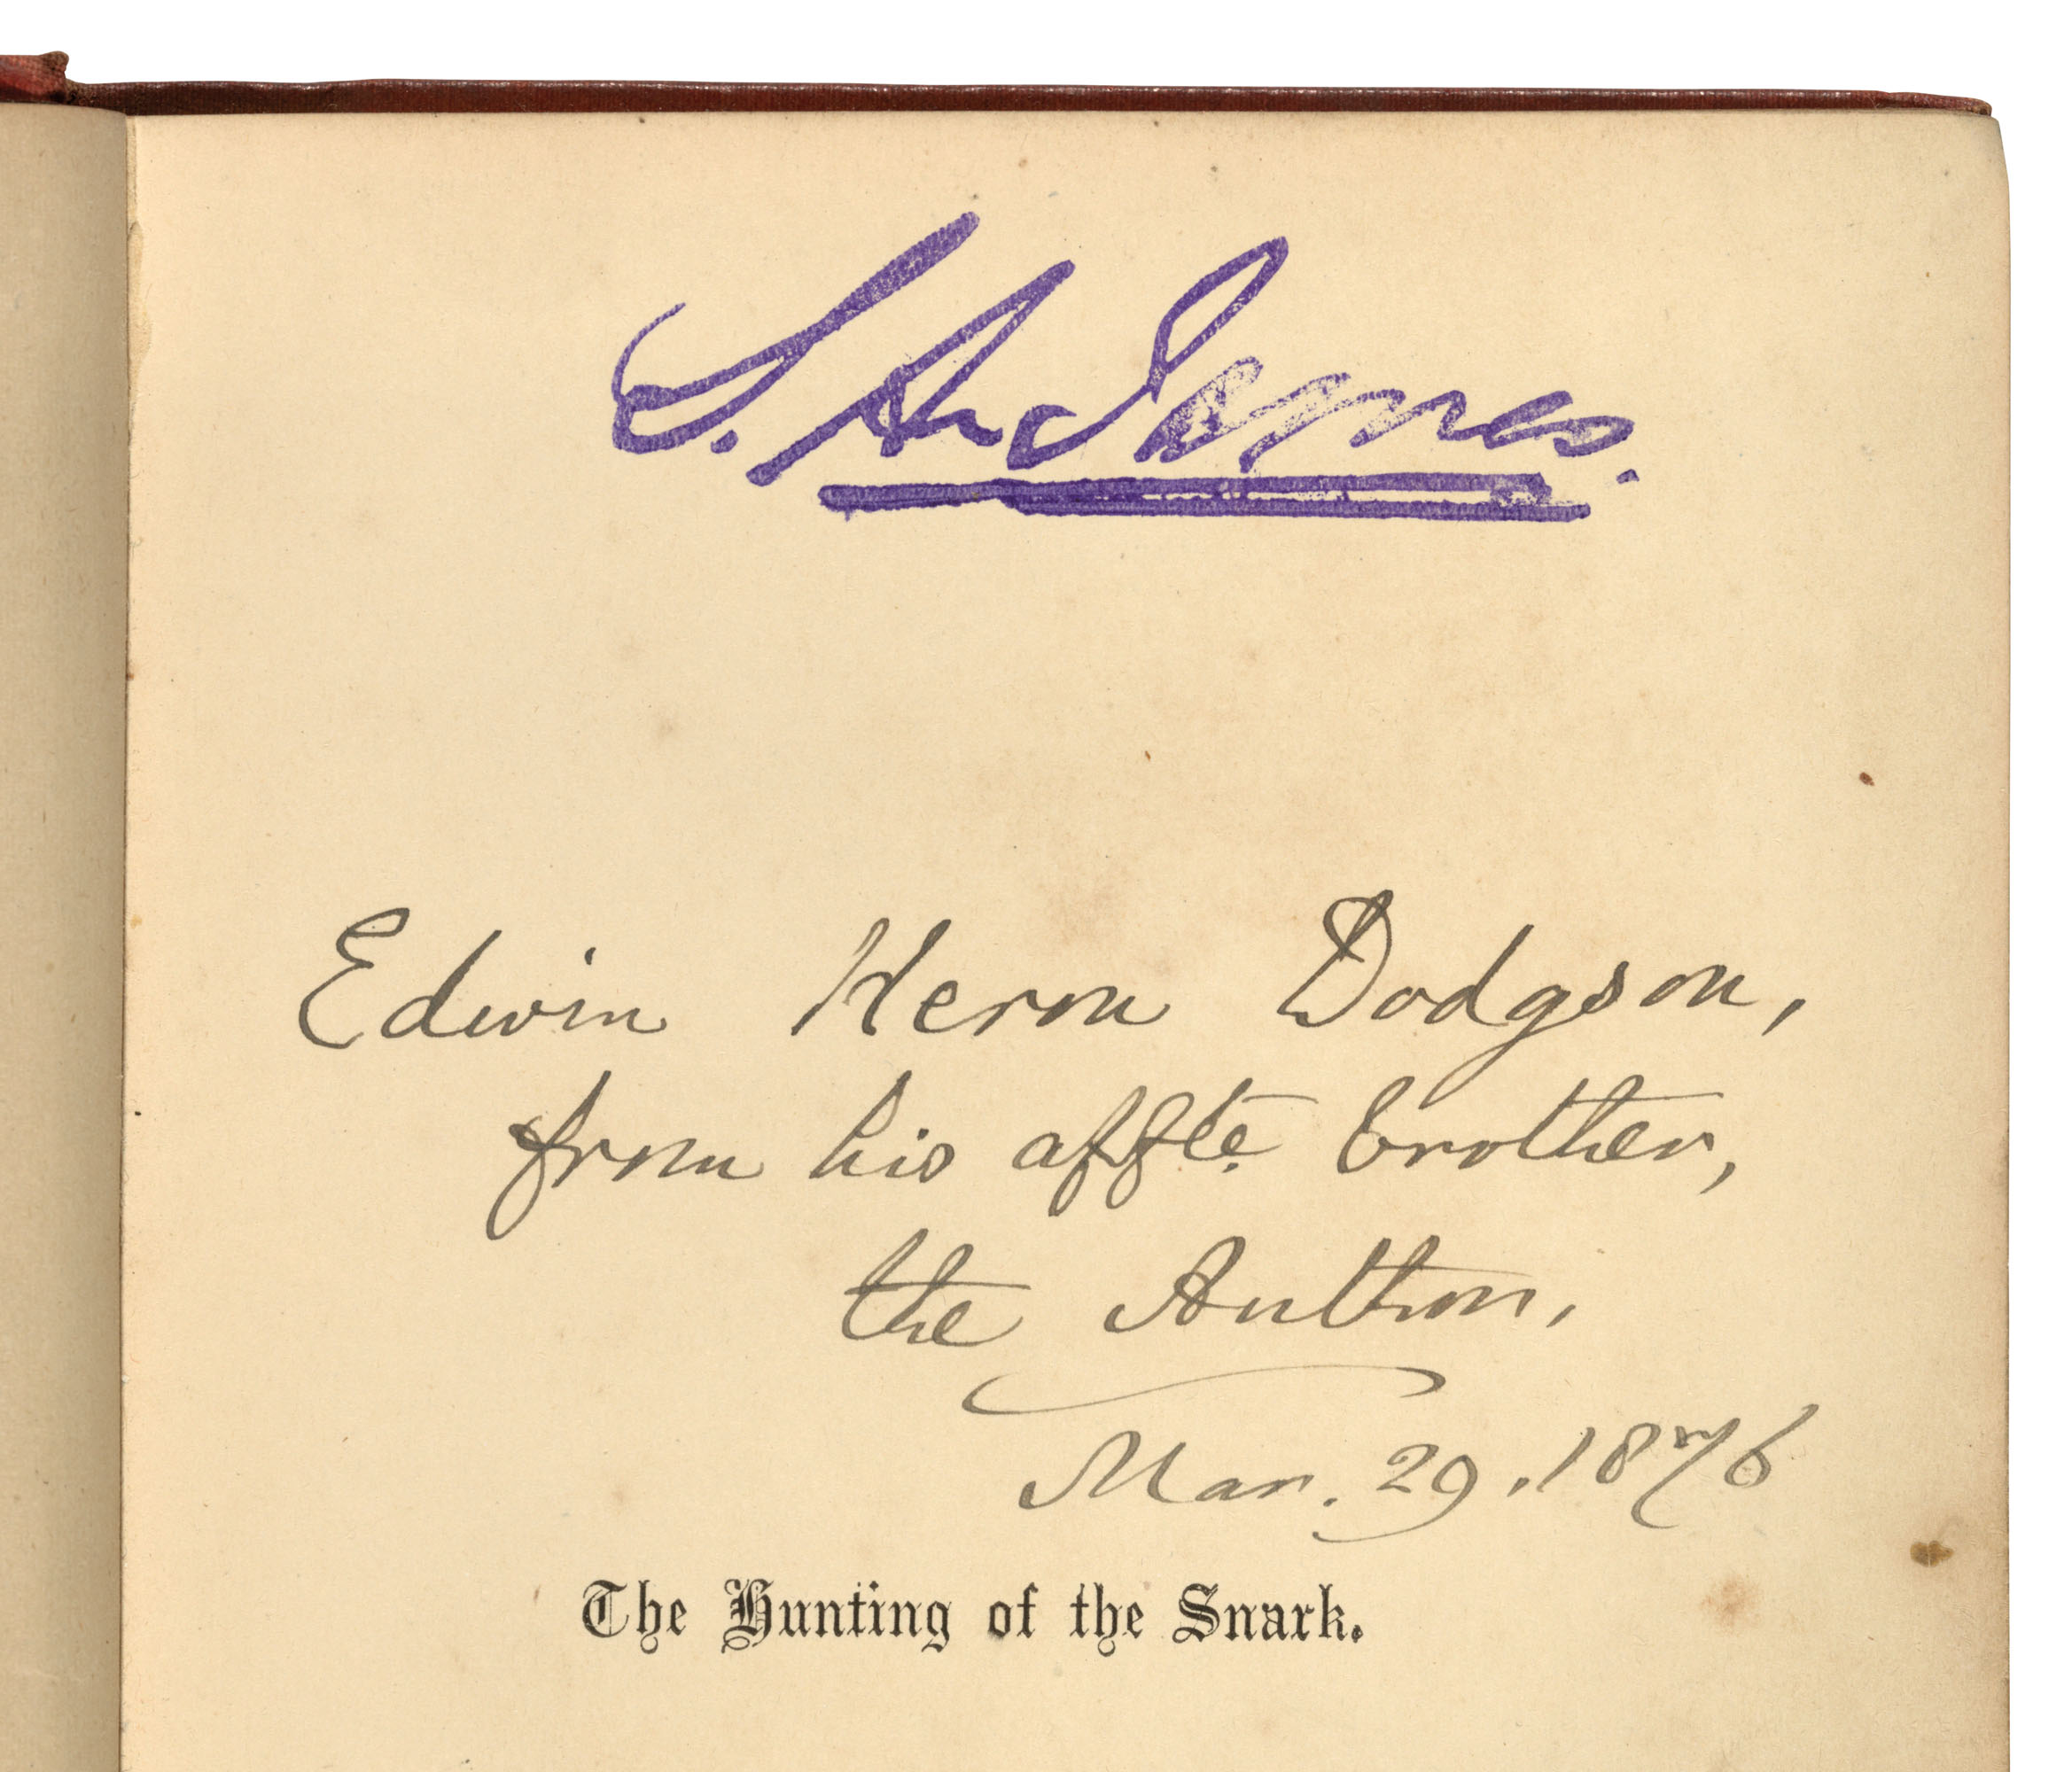 Edwin Heron Dodgson,
from his affte. brother,
the Author,
Mar. 29. 1876
The Hunting of the Snark.